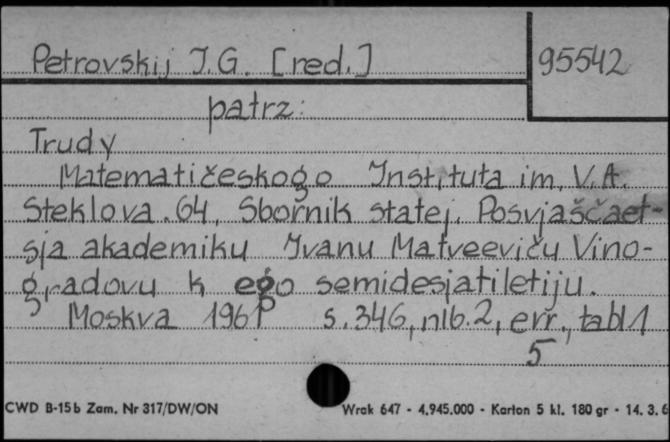 Petrovskij I.G. [red.] 95542
patrz:
Trudy
Matematičeskogo Instituta im. V.A.
Steklova. 64. Sbornik statej. Posvjaščaet-
sja akademiku Ivanu Matveeviču Vino-
gradovu k ego semidesjatiletiju.
Moskva 1961 s. 346, nlb. 2, err., tabl 1
5
CWD B-15b Zam. Nr 317/DW/ON Wrak 647 - 4.945.000 - Karton 5 kl. 180 gr - 14. 3. 6